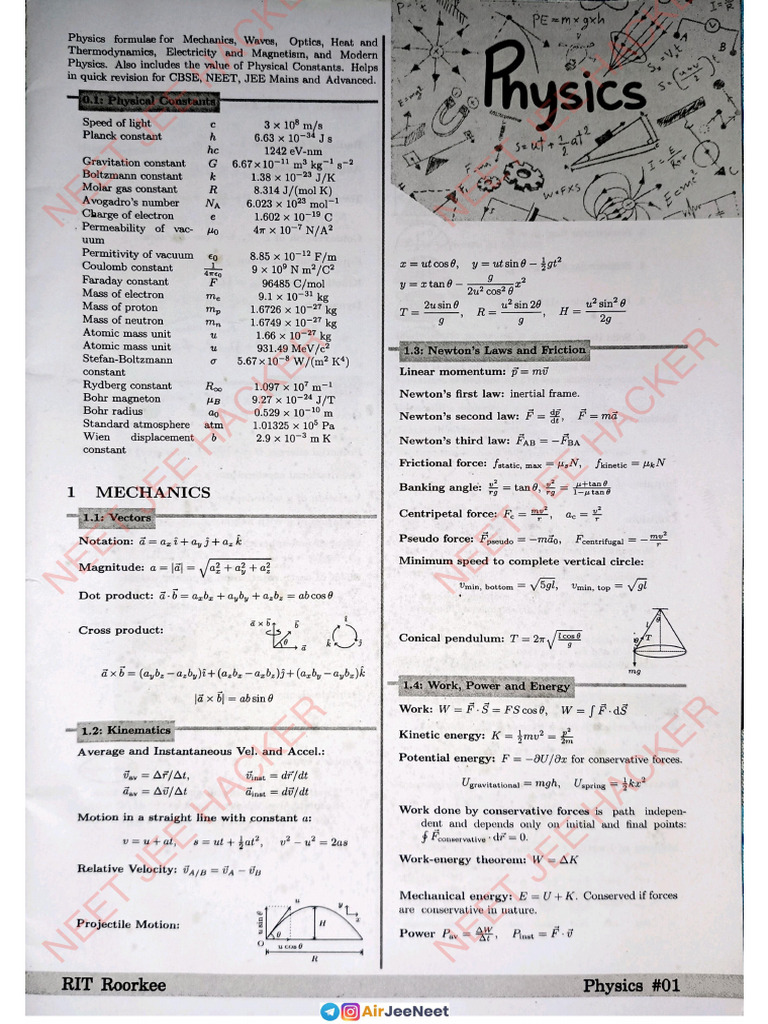 Physics formulae for Mechanics, Waves, Optics, Heat and
Thermodynamics, Electricity and Magnetism, and Modern
Physics. Also includes the value of Physical Constants. Helps
in quick revision for CBSE, NEET, JEE Mains and Advanced.
0.1: Physical Constants
Speed of light c 3 × 10⁸ m/s
Planck constant h 6.63 × 10⁻³⁴ J s
hc 1242 eV-nm
Gravitation constant G 6.67×10⁻¹¹ m³ kg⁻¹ s⁻²
Boltzmann constant k 1.38 × 10⁻²³ J/K
Molar gas constant R 8.314 J/(mol K)
Avogadro's number N_A 6.023 × 10²³ mol⁻¹
Charge of electron e 1.602 × 10⁻¹⁹ C
Permeability of vac- μ₀ 4π × 10⁻⁷ N/A²
uum
Permitivity of vacuum ϵ₀ 8.85 × 10⁻¹² F/m
Coulomb constant 1/4πϵ₀ 9 × 10⁹ N m²/C²
Faraday constant F 96485 C/mol
Mass of electron mₑ 9.1 × 10⁻³¹ kg
Mass of proton mₚ 1.6726 × 10⁻²⁷ kg
Mass of neutron mₙ 1.6749 × 10⁻²⁷ kg
Atomic mass unit u 1.66 × 10⁻²⁷ kg
Atomic mass unit u 931.49 MeV/c²
Stefan-Boltzmann σ 5.67×10⁻⁸ W/(m² K⁴)
constant
Rydberg constant R∞ 1.097 × 10⁷ m⁻¹
Bohr magneton μ_B 9.27 × 10⁻²⁴ J/T
Bohr radius a₀ 0.529 × 10⁻¹⁰ m
Standard atmosphere atm 1.01325 × 10⁵ Pa
Wien displacement b 2.9 × 10⁻³ m K
constant
1 MECHANICS
1.1: Vectors
Notation: a⃗ = aₓ î + a_y ĵ + a_z k̂
Magnitude: a = |a⃗| = √(aₓ² + a_y² + a_z²)
Dot product: a⃗ · b⃗ = aₓbₓ + a_yb_y + a_zb_z = ab cos θ
Cross product: a⃗ × b⃗ b⃗ θ a⃗ î ĵ k̂
a⃗ × b⃗ = (a_yb_z − a_zb_y)î + (a_zbₓ − aₓb_z)ĵ + (aₓb_y − a_ybₓ)k̂
|a⃗ × b⃗| = ab sin θ
1.2: Kinematics
Average and Instantaneous Vel. and Accel.:
v⃗_av = Δr⃗/Δt, v⃗_inst = dr⃗/dt
a⃗_av = Δv⃗/Δt a⃗_inst = dv⃗/dt
Motion in a straight line with constant a:
v = u + at, s = ut + ½at², v² − u² = 2as
Relative Velocity: v⃗_A/B = v⃗_A − v⃗_B
Projectile Motion: y x u u sin θ H θ O u cos θ R
Physics
PE = m×g×h
S = ut + ½at²
W = F×S
x = ut cos θ, y = ut sin θ − ½gt²
y = x tan θ − g/(2u² cos² θ) x²
T = 2u sin θ/g, R = u² sin 2θ/g, H = u² sin² θ/2g
1.3: Newton's Laws and Friction
Linear momentum: p⃗ = mv⃗
Newton's first law: inertial frame.
Newton's second law: F⃗ = dp⃗/dt, F⃗ = ma⃗
Newton's third law: F⃗_AB = −F⃗_BA
Frictional force: f_static, max = μₛN, f_kinetic = μₖN
Banking angle: v²/rg = tan θ, v²/rg = (μ+tan θ)/(1−μ tan θ)
Centripetal force: F_c = mv²/r, a_c = v²/r
Pseudo force: F⃗_pseudo = −ma⃗₀, F_centrifugal = −mv²/r
Minimum speed to complete vertical circle:
v_min, bottom = √5gl, v_min, top = √gl
Conical pendulum: T = 2π√(l cos θ/g) l θ θ T mg
1.4: Work, Power and Energy
Work: W = F⃗ · S⃗ = FS cos θ, W = ∫ F⃗ · dS⃗
Kinetic energy: K = ½mv² = p²/2m
Potential energy: F = −∂U/∂x for conservative forces.
U_gravitational = mgh, U_spring = ½kx²
Work done by conservative forces is path indepen-
dent and depends only on initial and final points:
∮ F⃗_conservative · dr⃗ = 0.
Work-energy theorem: W = ΔK
Mechanical energy: E = U + K. Conserved if forces
are conservative in nature.
Power P_av = ΔW/Δt, P_inst = F⃗ · v⃗
RIT Roorkee Physics #01
NEET JEE HACKER
NEET JEE HACKER
NEET JEE HACKER
NEET JEE HACKER
NEET JEE HACKER
NEET JEE HACKER
AirJeeNeet